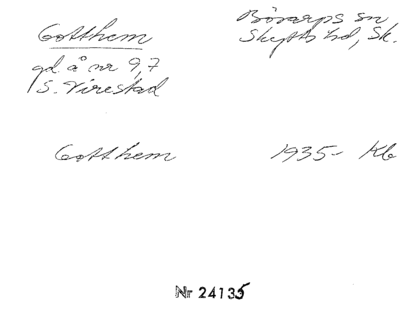 Gotthem
Bösarps sn
Skytts hd, Sk.
gd å nr 9,7
S. Virestad
Gotthem 1935- Kb
Nr 24135